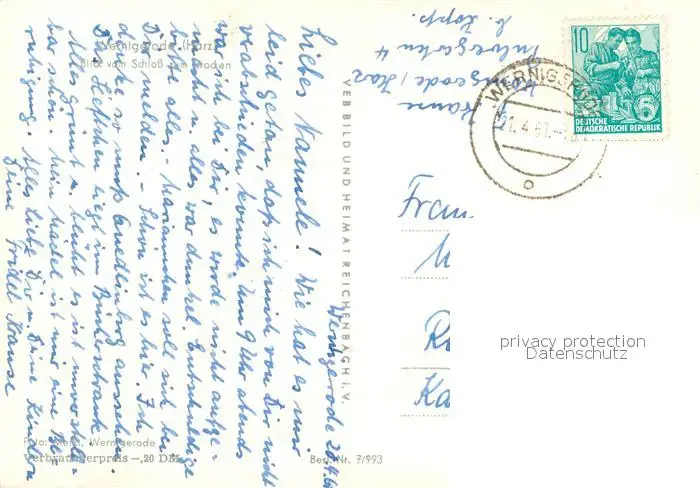 Wernigerode (Harz)
Blick vom Schloß zum Brocken
Wernigerode 20.4.61
Liebes Nannele! Wie hat es mir
leid getan, daß ich mich von Dir nicht
verabschieden konnte. Um 9 Uhr abends
war ich bei Dir, es wurde nicht aufge-
macht u. alles war dunkel. Entschuldige
bitte alles. - Mariannchen soll sich bei
Dir melden. - Schön ist es hier. Ich
denke so muß Quedlinburg aussehen.
Das Heftchen liegt im Bücherschrank
Alles grünt u. blüht es ist unvorstell-
bar schön. Mein Mädel ist mir eine Be-
ruhigung. Alles Liebe Dir u. Deine Kindern
Deine Friedel Krause
Foto: Wernigerode
Verbraucherpreis -,20 DM
Best.-Nr. 7/993
VEB BILD UND HEIMAT REICHENBACH I. V.
Krause
Wernigerode/Harz
4
b. Zopp.
Frau
K
10
DEUTSCHE
DEMOKRATISCHE REPUBLIK
WERNIGERODE
21.4.61.
privacy protection
Datenschutz